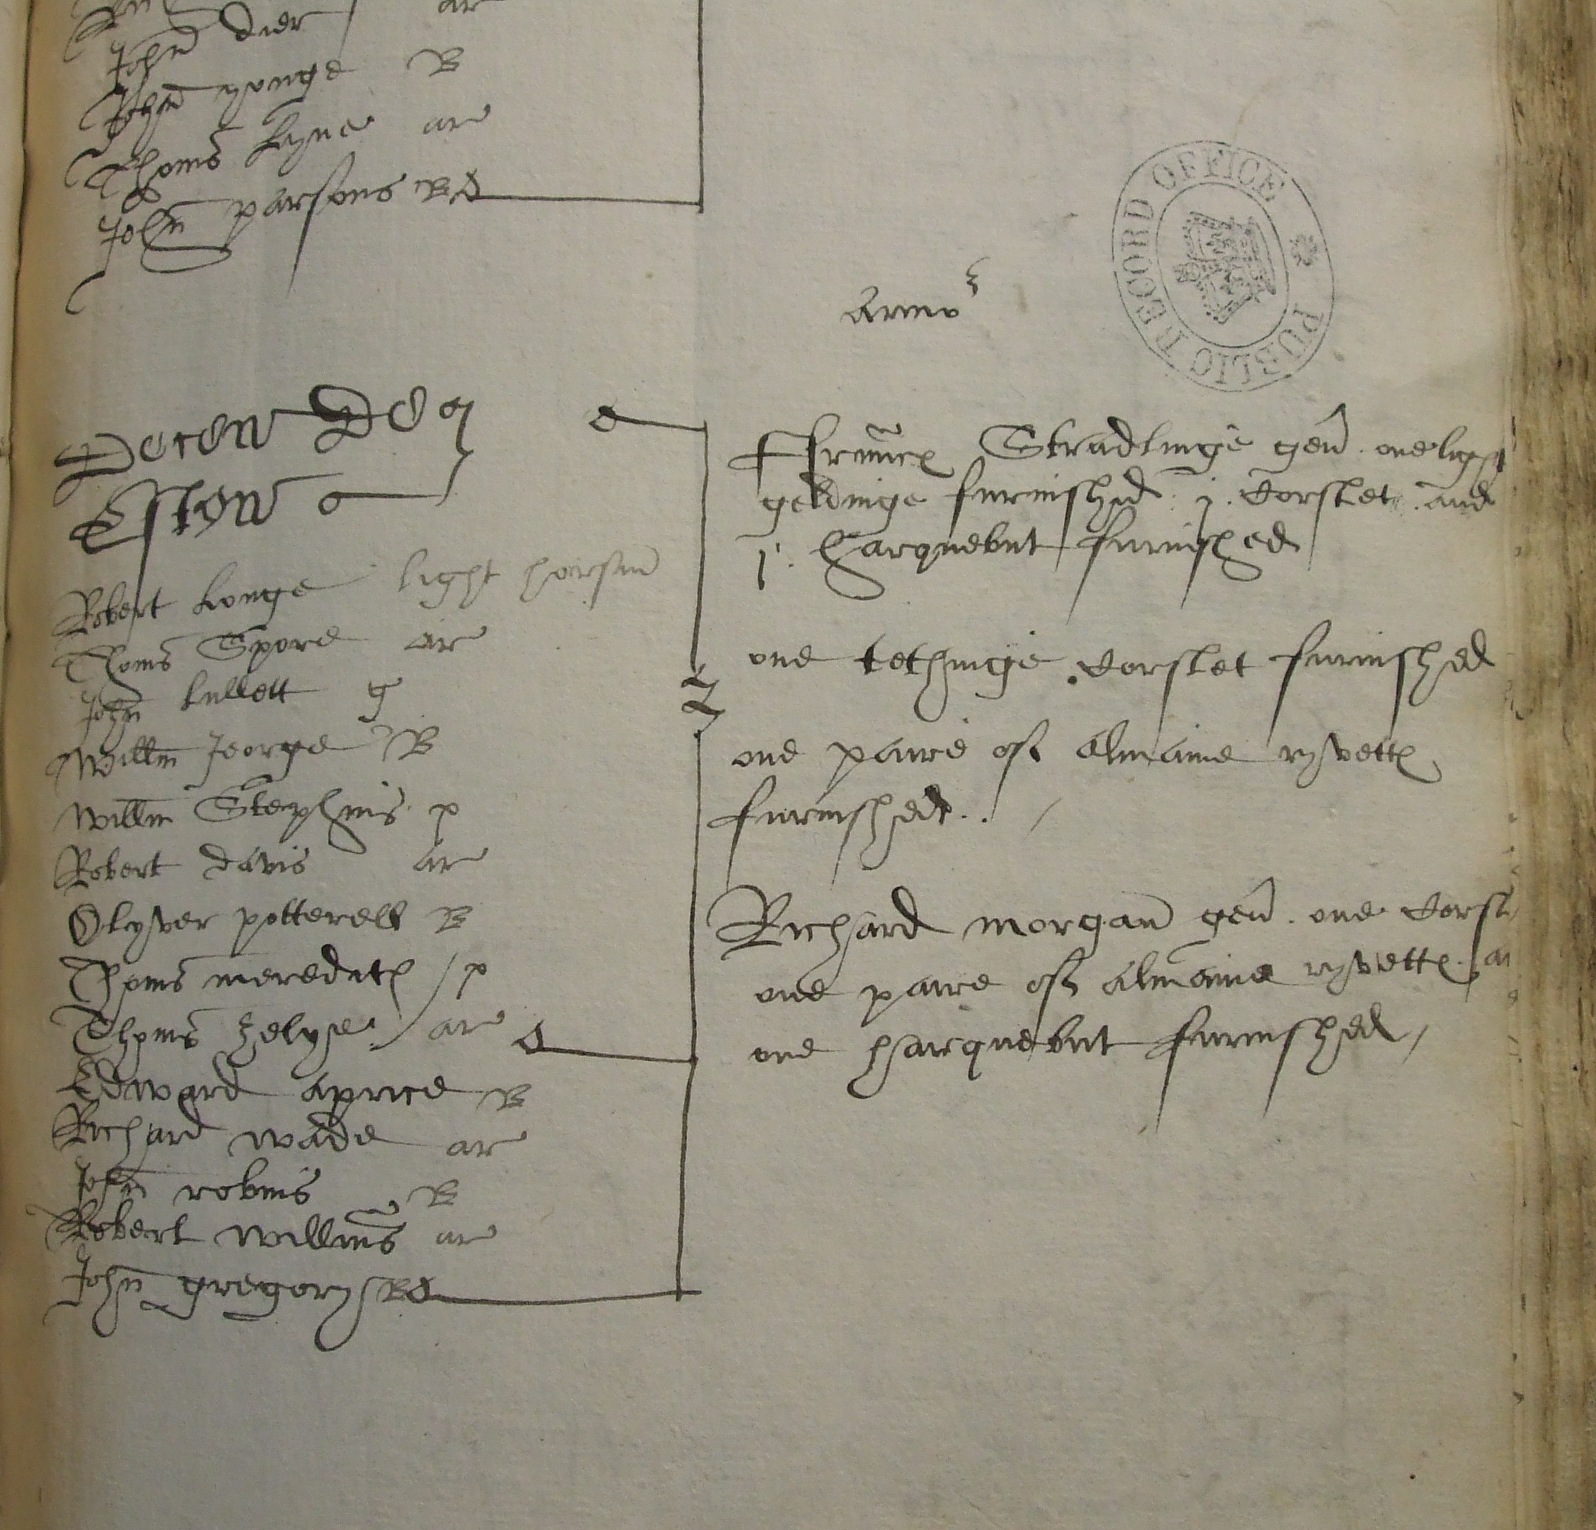 John dier ar
John yonge B
Thoms Lyne ar
John parsons B
Armor
PUBLIC RECORD OFFICE
Decem de
Eston
Robert Longe light horsmn
Thoms Spore ar
John Lullett g
Willm Jeorge B
Willm Stephins p
Robert davis ar
Olyver potterell B
Thoms meredith p
Thoms Zelye ar
Edward aprice B
Richard wade ar
John robins B
Robert Willms ar
John gregory B
Frauncs Stradlinge gen. one light
geldinge furnished j. Corslet. and
j. harquebut furnished
one tethinge Corslet furnished
one paire of almaine ryvetts
furnished
Richard morgan gen. one Corsl
one paire of almaine ryvetts. a
one harquebut furnished